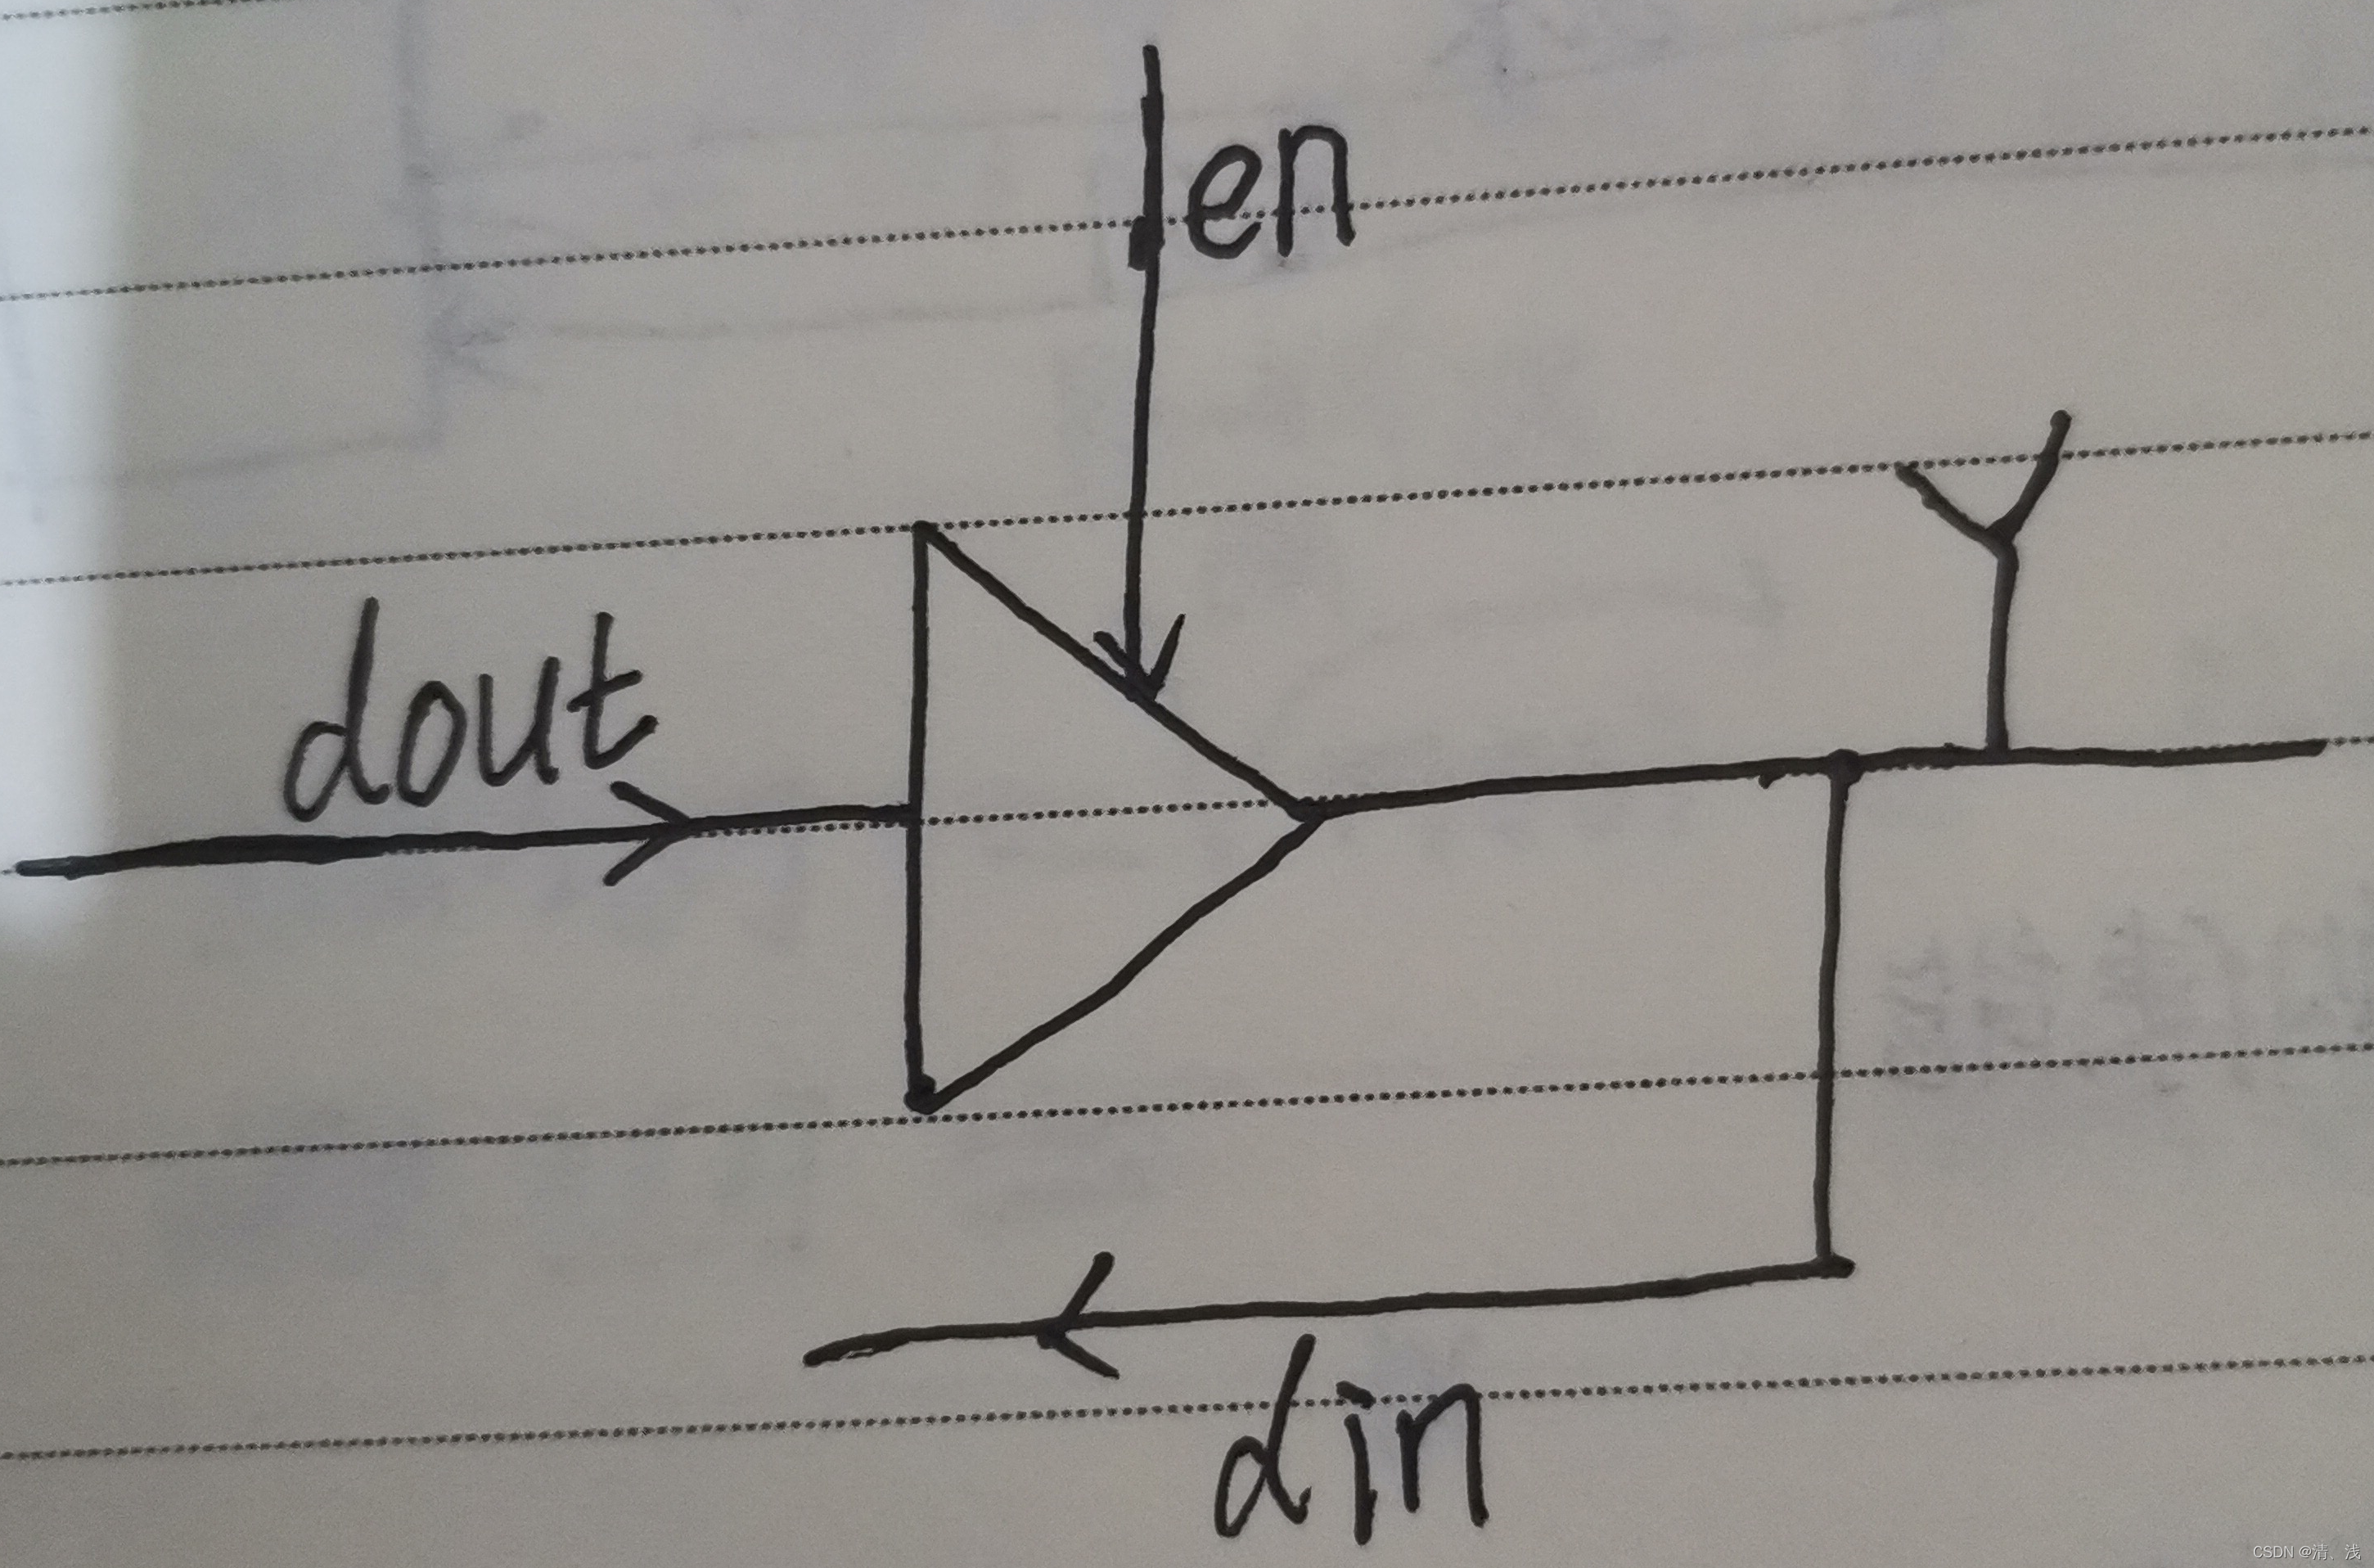 en
Y
dout
din
CSDN @清、浅